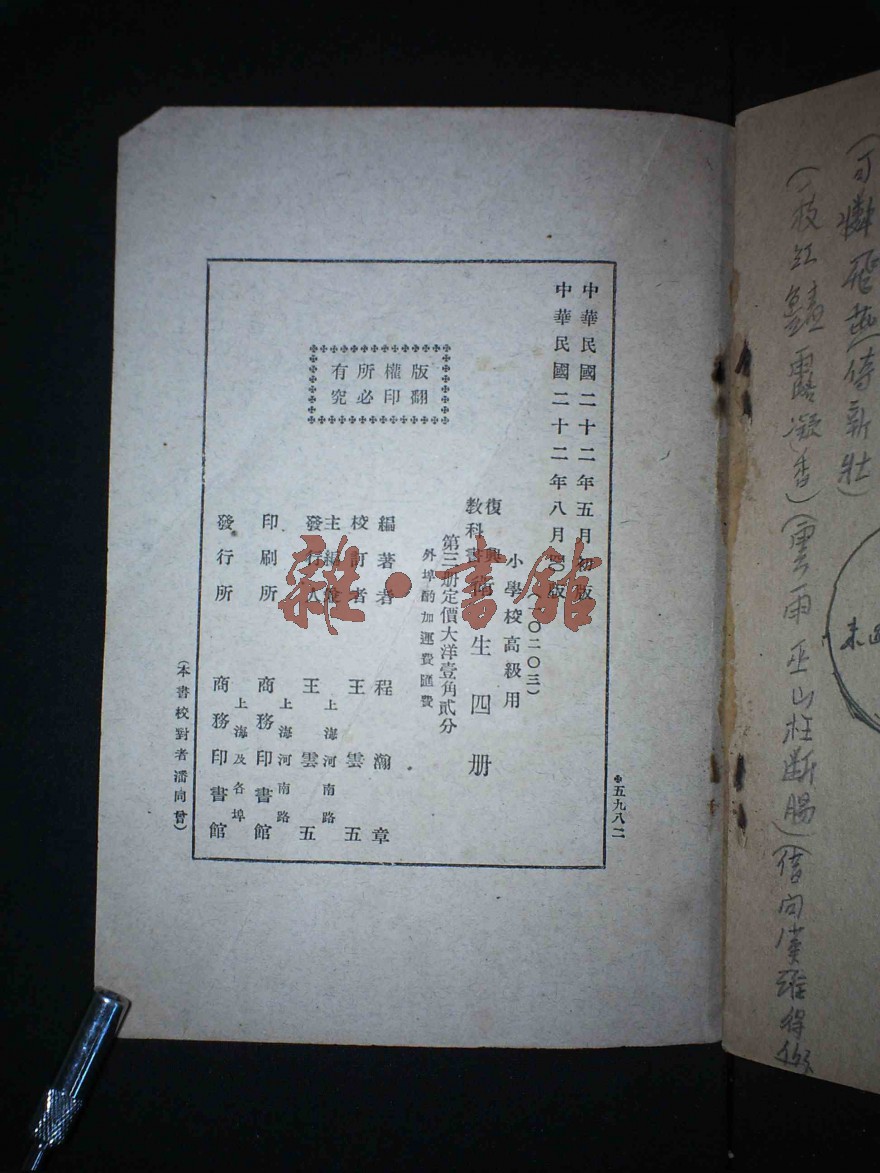 (可憐飛燕倚新壯)
(一枝紅豔露凝香)(雲雨巫山枉斷腸)(借問漢
五九八二
中華民國二十二年五月初版
中華民國二十二年八月 版
(一〇二〇三)
小學校高級用
復興教科書 衛生四册
第三册定價大洋壹角貳分
外埠酌加運費匯費
版權所有
翻印必究
編著者 程瀚章
校訂者 王雲五
主編兼發行人 王雲五
上海河南路
印刷所 商務印書館
上海河南路
發行所 商務印書館
上海及各埠
(本書校對者潘同曾)
雜·書館